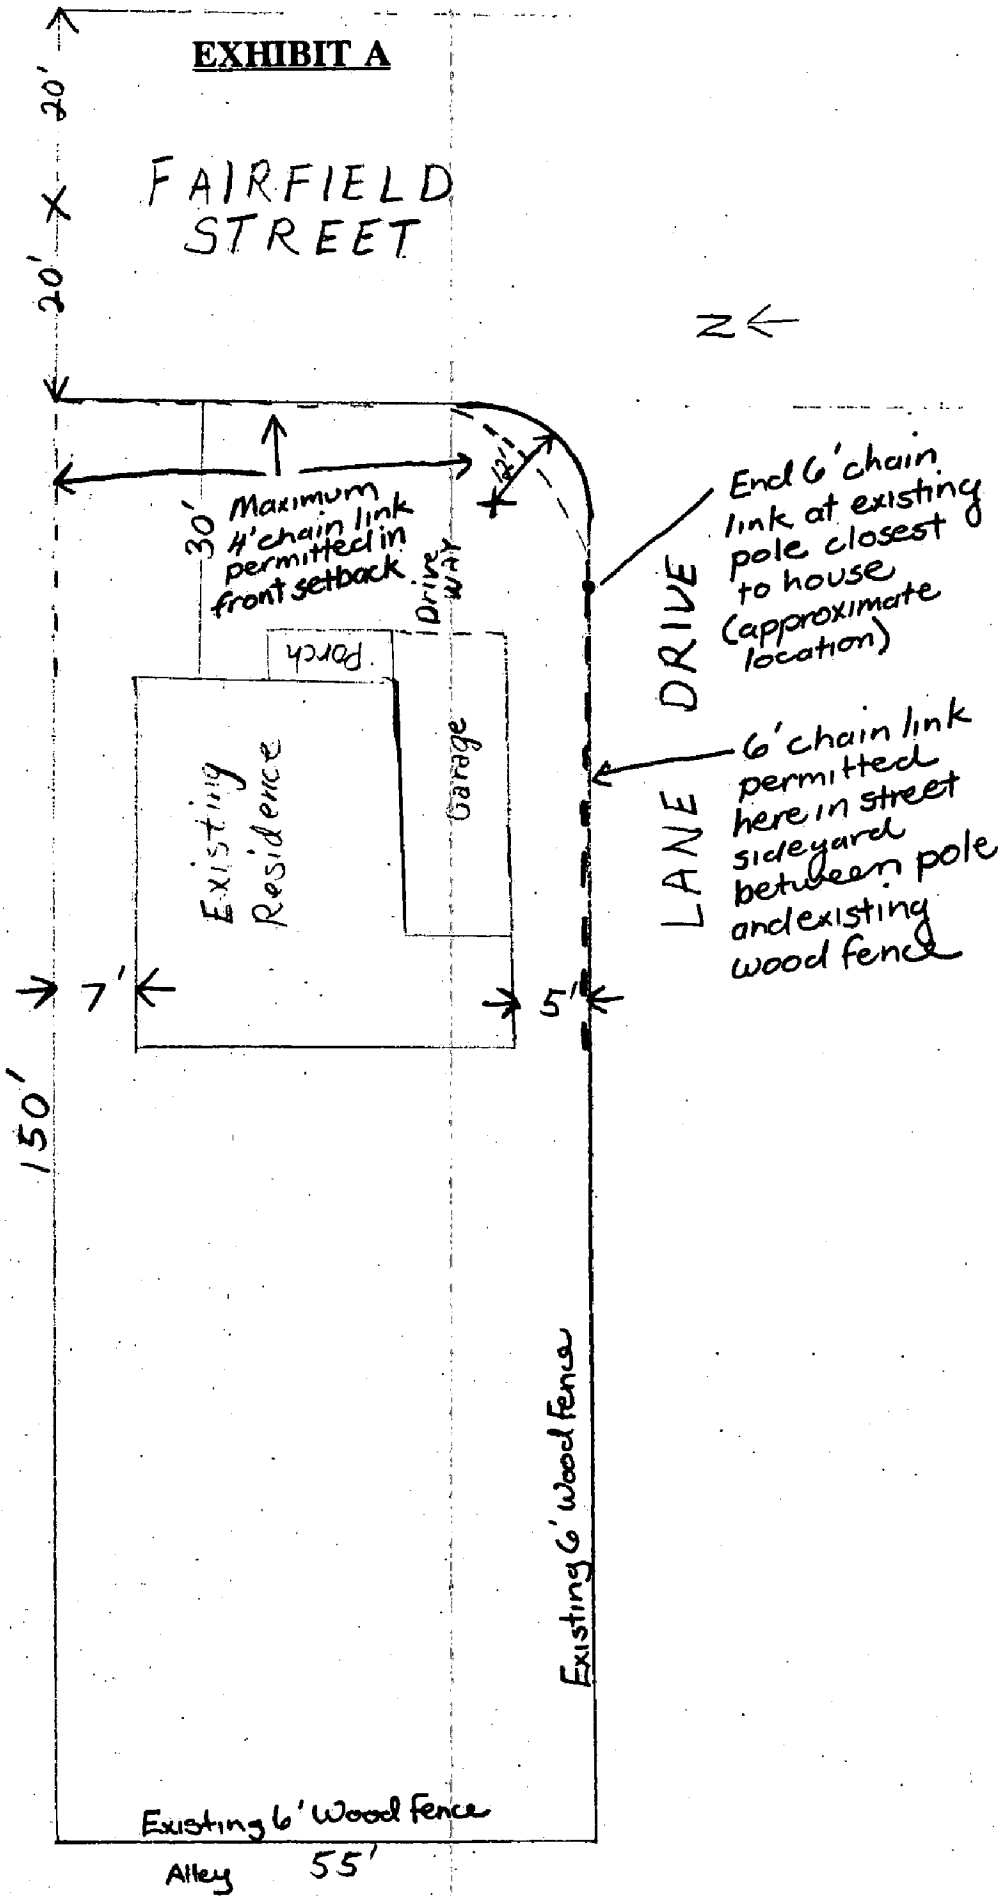 EXHIBIT A
20' X 20'
FAIRFIELD
STREET
Z
12'
30'
Maximum
4' chain link
permitted in
front setback
Drive
way
End 6' chain
link at existing
pole closest
to house
(approximate
location)
Porch
Garage
Existing
Residence
LANE DRIVE
6' chain link
permitted
here in street
sideyard
between pole
and existing
wood fence
7'
5'
150'
Existing 6' Wood Fence
Existing 6' Wood Fence
Alley 55'